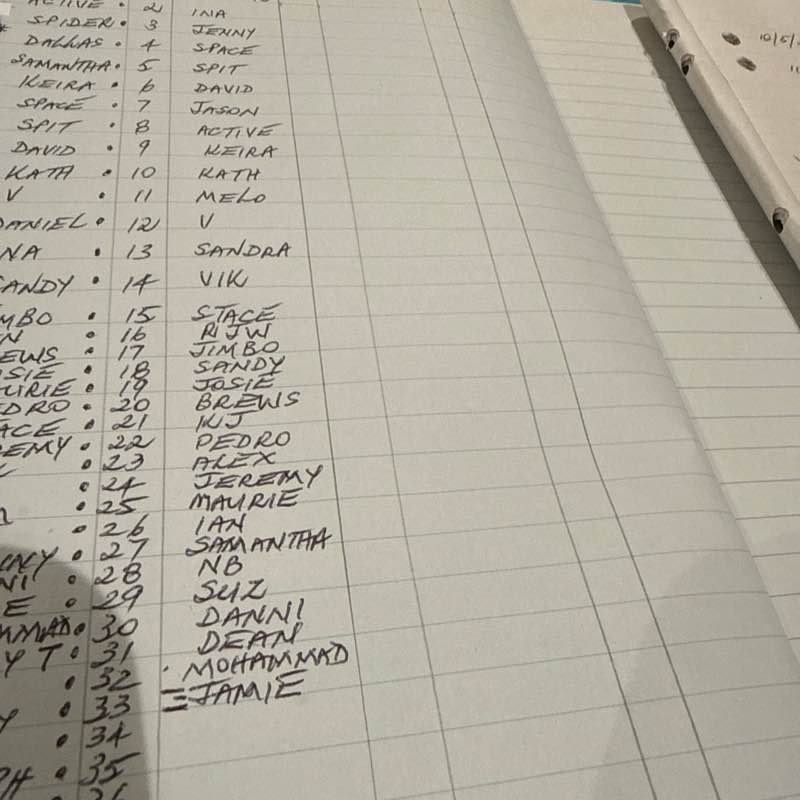 ACTIVE • 2 INA
SPIDER • 3 JENNY
DALLAS • 4 SPACE
SAMANTHA • 5 SPIT
KEIRA • 6 DAVID
SPACE • 7 JASON
SPIT • 8 ACTIVE
DAVID • 9 KEIRA
KATH • 10 KATH
V • 11 MELO
DANIEL • 12 V
NA • 13 SANDRA
SANDY • 14 VIK
MBO • 15 STACE
N • 16 RIJW
EWS • 17 JIMBO
SIE • 18 SANDY
URIE • 19 JOSIE
EDRO • 20 BREWS
ACE • 21 KJ
EMY • 22 PEDRO
• 23 ALEX
• 24 JEREMY
• 25 MAURIE
• 26 IAN
NNY • 27 SAMANTHA
NI • 28 NB
E • 29 SUZ
MMAD • 30 DANNI
Y T • 31 DEAN
• 32 MOHAMMAD
• 33 JAMIE
• 34
PH • 35
10/5/